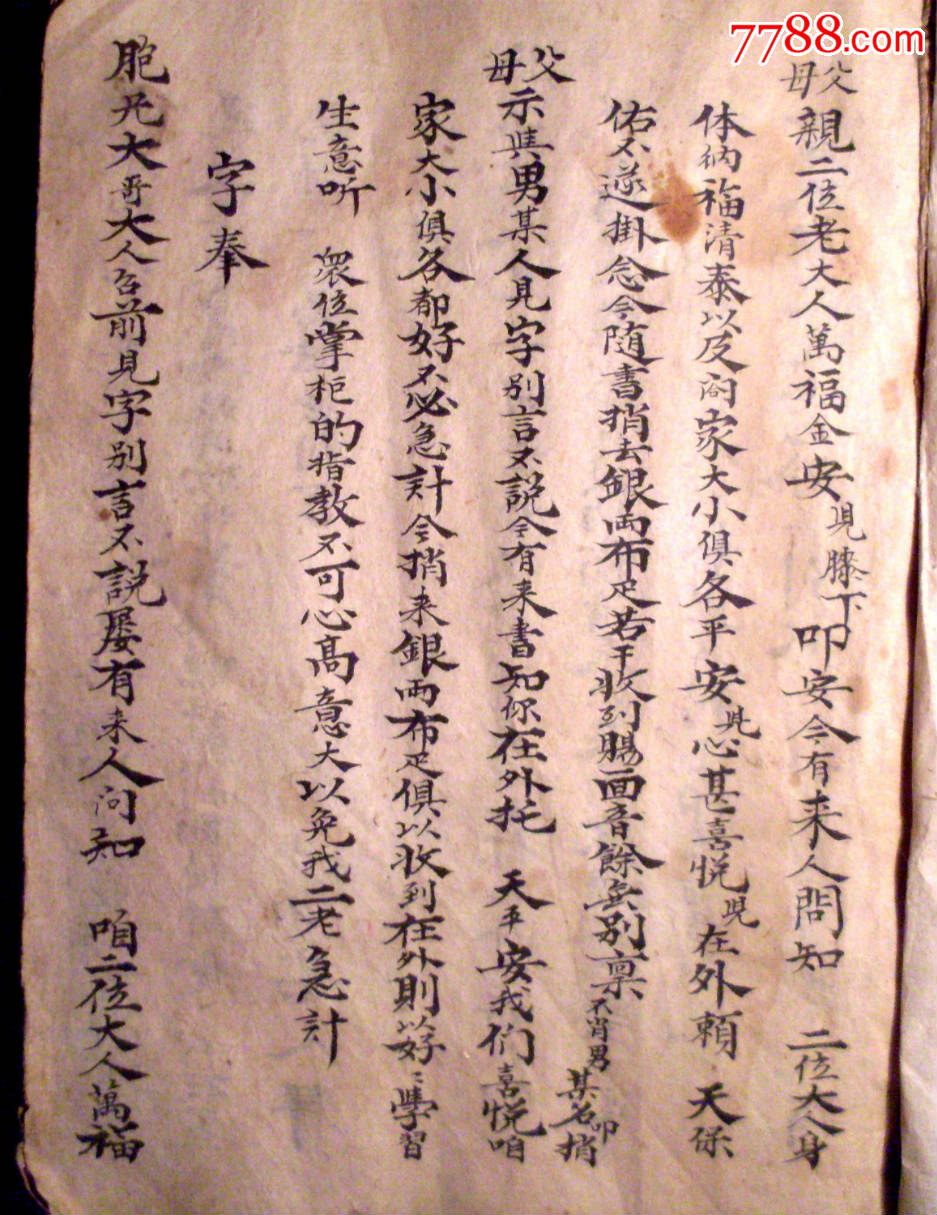 7788.com
父母親二位老大人萬福金安児膝下叩安今有来人問知 二位大人身
体納福清泰以及阁家大小俱各平安児心甚喜悦児在外頼 天保
佑不遂掛念今随書捎去銀両布疋若干收到賜面音餘無别禀不肖男某名叩捎
父母示與男某人見字别言不説今有来書知你在外托 天平安我们喜悦咱
家大小俱各都好不必急計今捎来銀両布疋俱以收到在外則以好好學習
生意听 衆位掌柜的指教不可心高意大以免我二老急計
字奉
胞兄大哥大人台前見字别言不説屡有来人问知 咱二位大人萬福